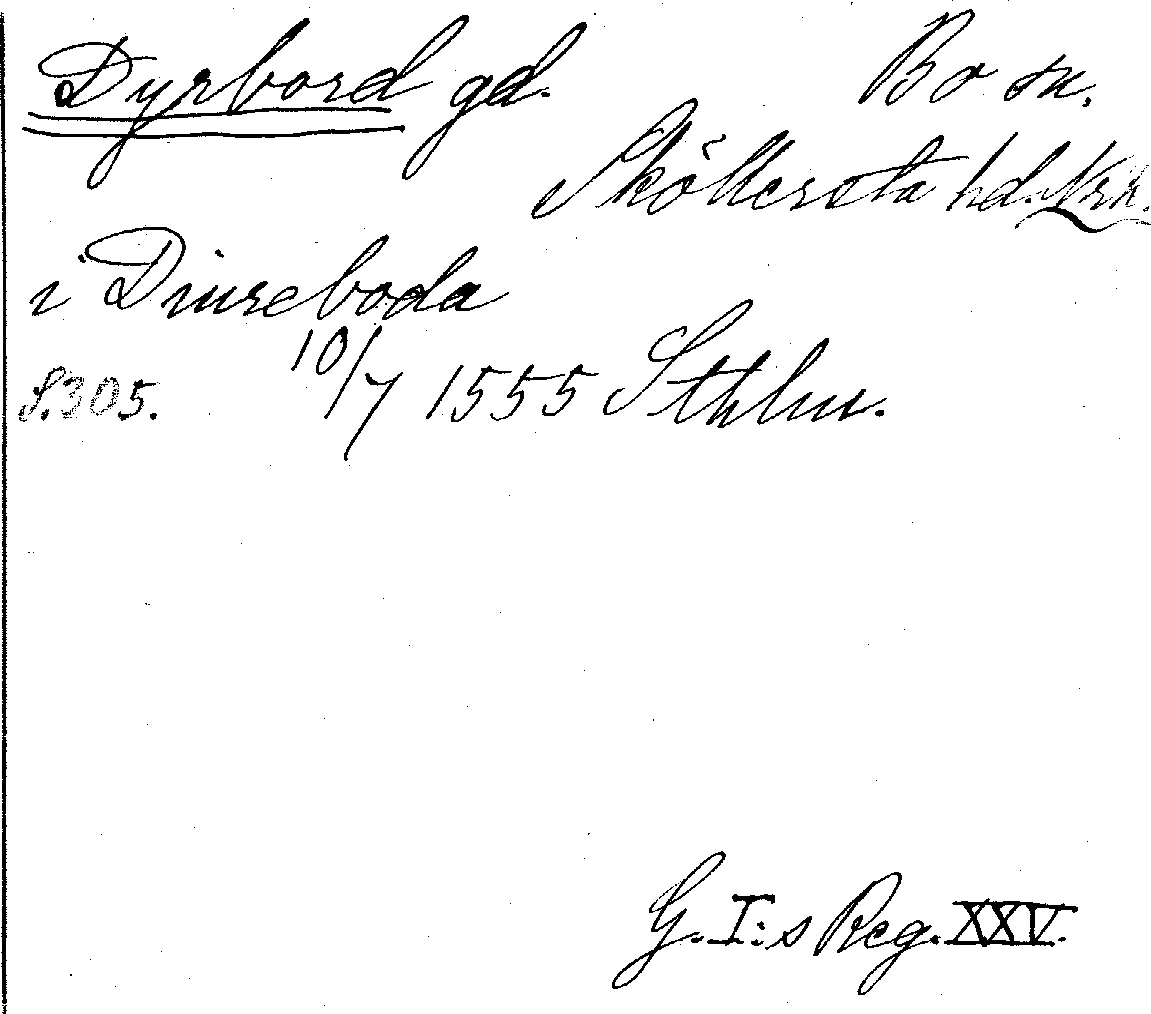 Dyrbord gd. Bo sn.
Sköllersta hd. Nrk.
i Diureboda
S.305. 10/7 1555 Sthlm.
G. I:s Reg. XXV.